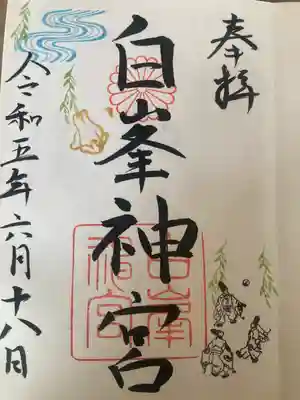 奉拝
白峯神宮
白峯神宮
令和五年六月十八日